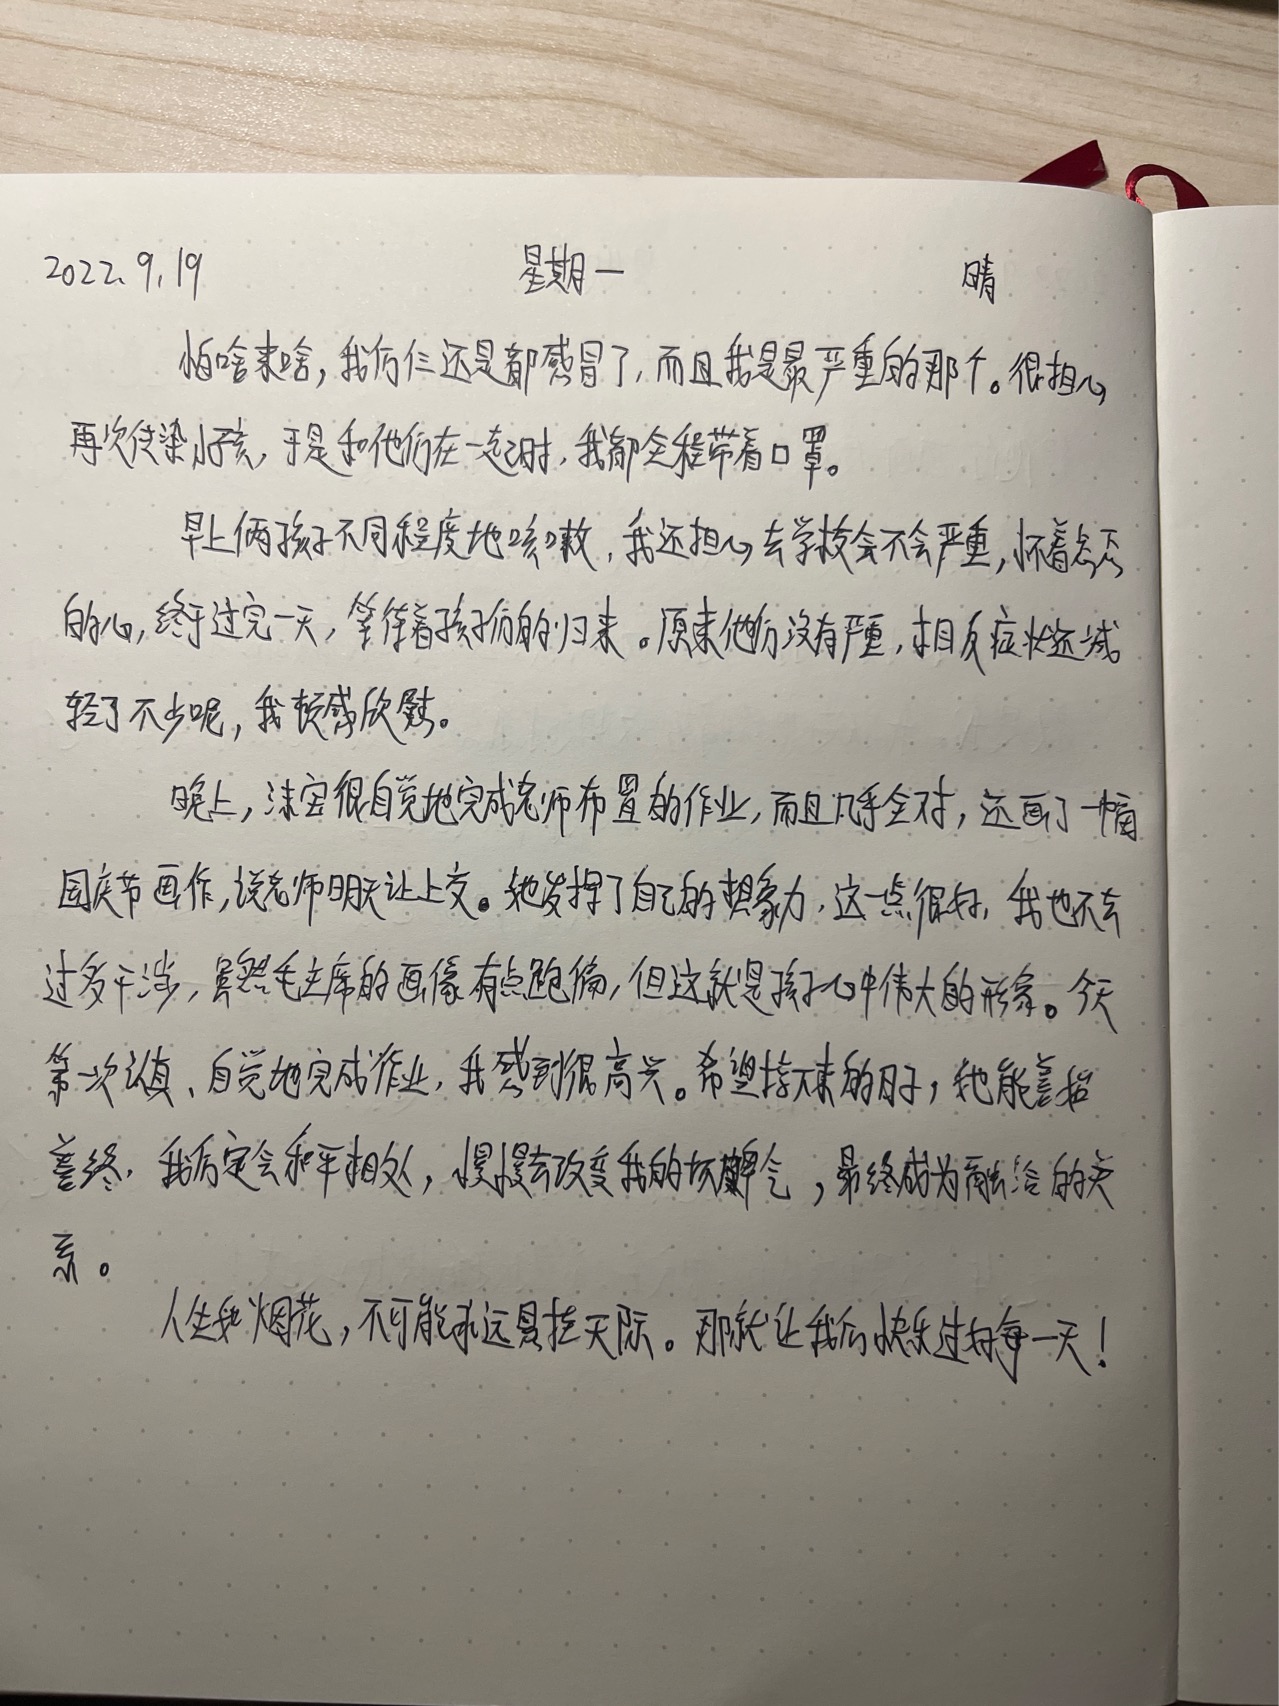 2022.9.19 星期一 晴
怕啥来啥,我们仨还是都感冒了,而且我是最严重的那个。很担心
再次传染小孩,于是和他们在一起时,我都全程带着口罩。
早上俩孩子不同程度地咳嗽,我还担心去学校会不会严重,怀着忐忑
的心,终于过完一天,等待着孩子们的归来。原来他们没有严重,相反症状还减
轻了不少呢,我顿感欣慰。
晚上,沫宝很自觉地完成老师布置的作业,而且几乎全对,还画了一幅
国庆节画作,说老师明天让上交。她发挥了自己的想象力,这一点很好,我也不去
过多干涉,虽然毛主席的画像有点跑偏,但这就是孩子心中伟大的形象。今天
第一次认真、自觉地完成作业,我感到很高兴。希望接下来的日子,她能善始
善终,我们定会和平相处,慢慢去改变我的坏脾气,最终成为融洽的关
系。
人生如烟花,不可能永远悬挂天际。那就让我们快乐过好每一天!